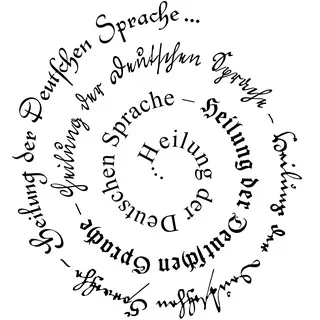 ... Heilung der Deutschen Sprache –
Heilung der Deutſchen Sprache –
Heilung der Deutſchen Sprache –
Heilung der Deutſchen Sprache –
Heilung der Deutſchen Sprache ...